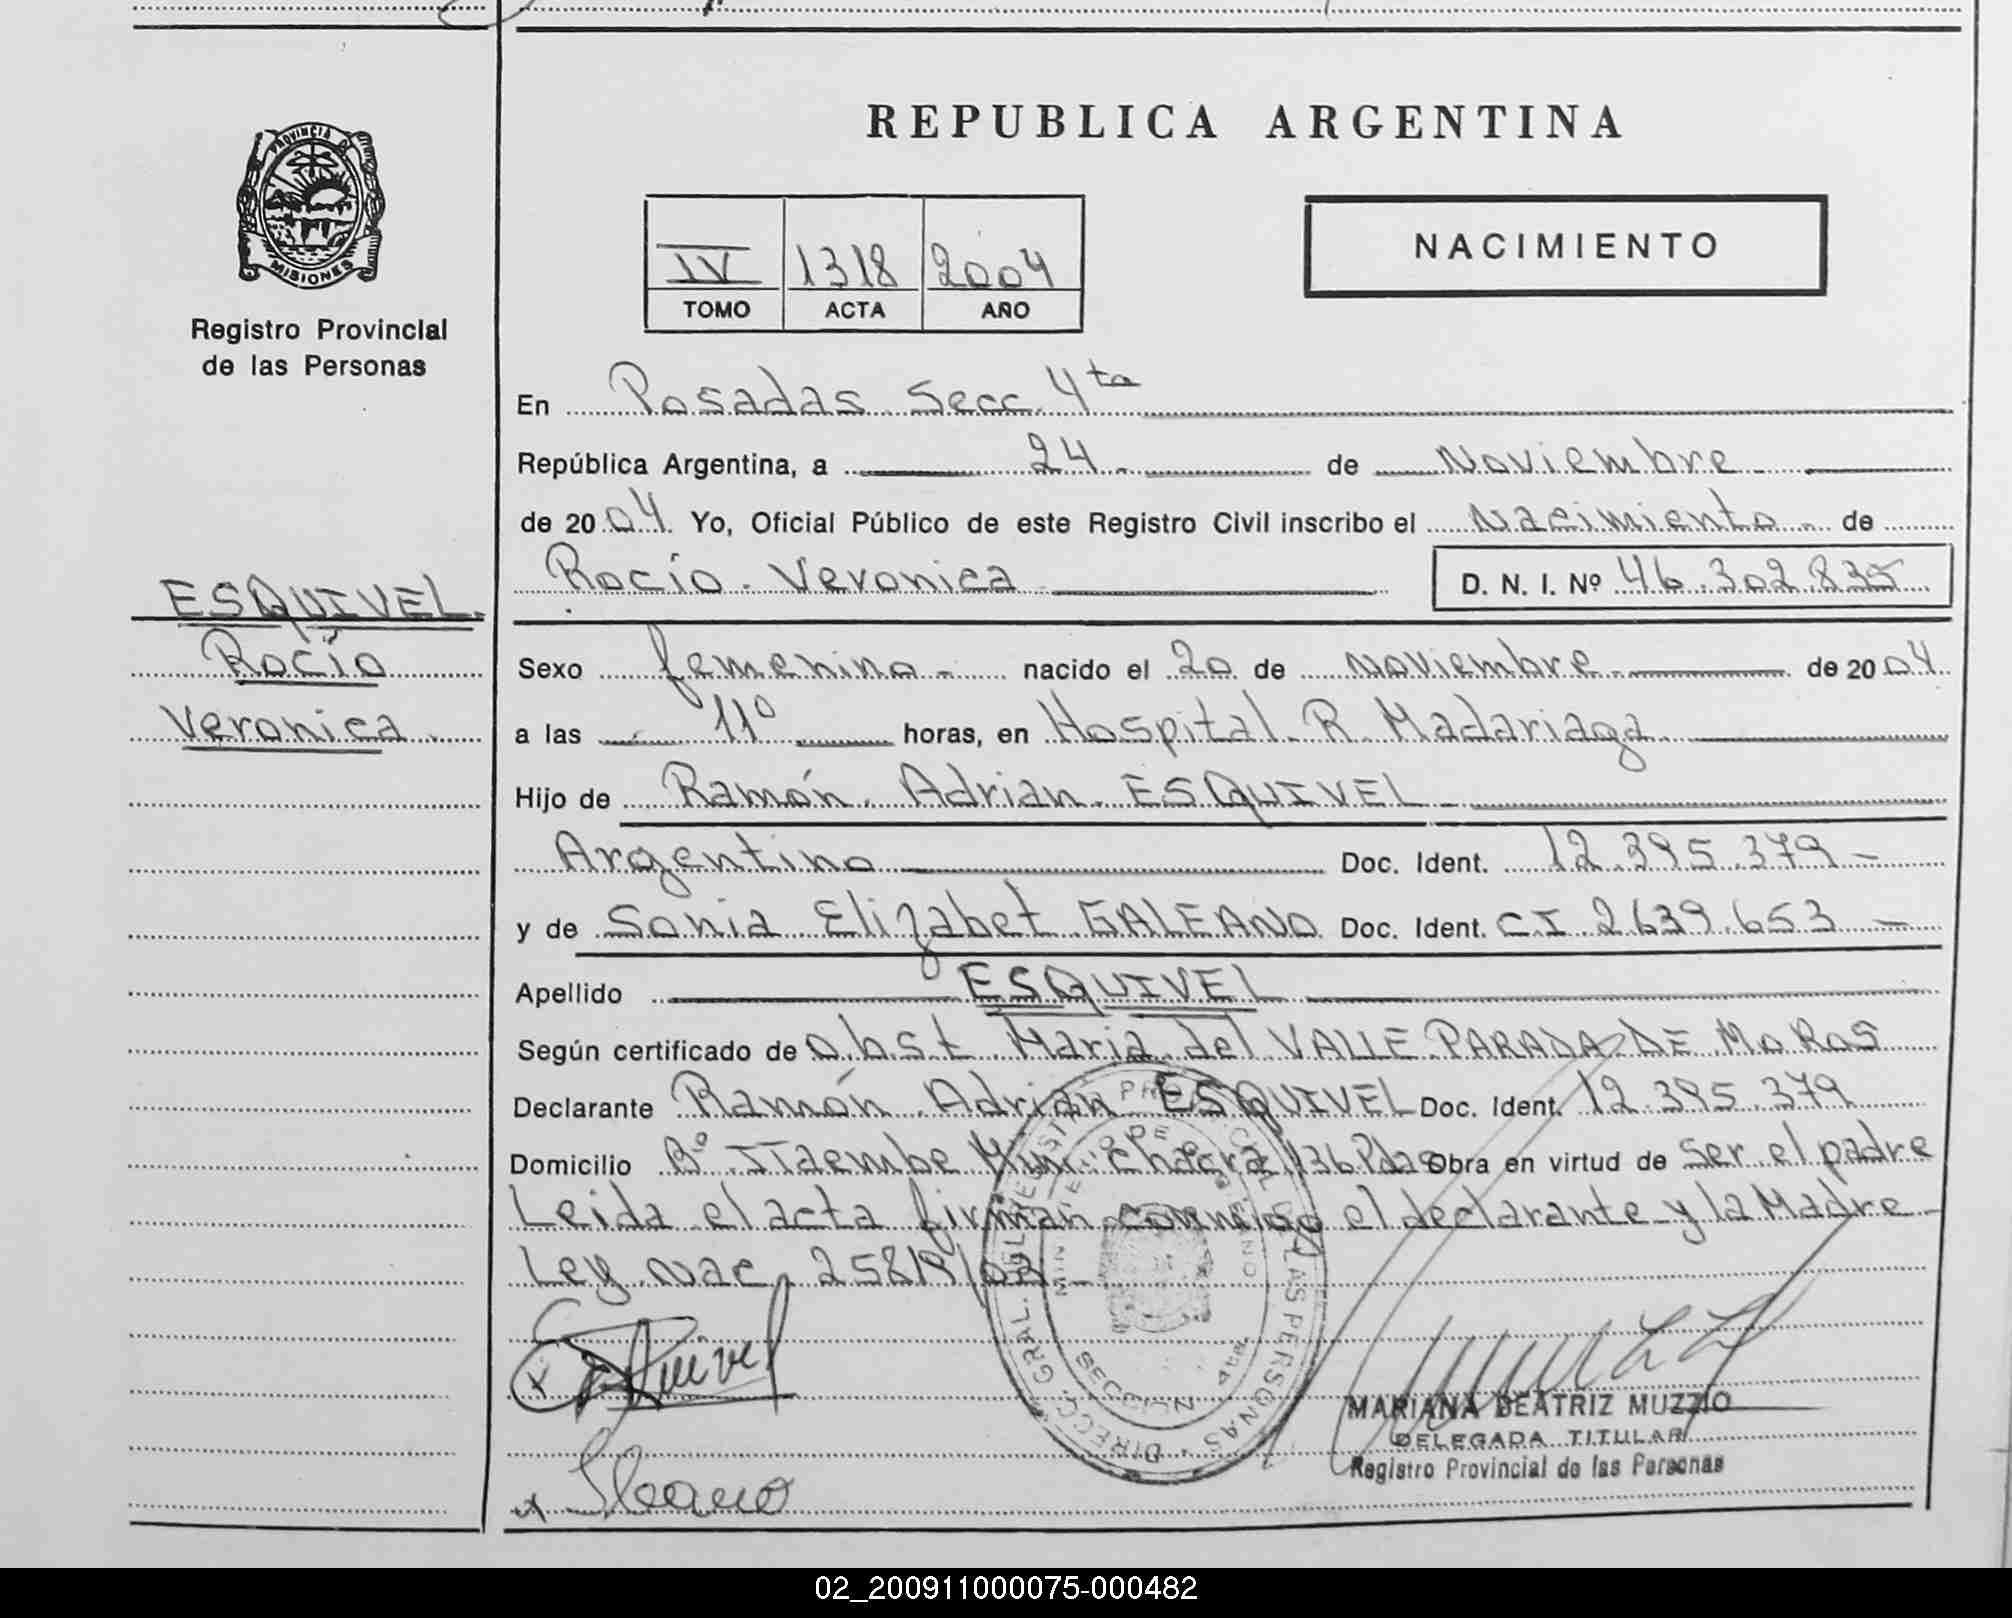 REPUBLICA ARGENTINA
PROVINCIA DE
MISIONES
Registro Provincial
de las Personas
IV 1318 2004
TOMO ACTA AÑO
NACIMIENTO
En Posadas Secc. 4ta
República Argentina, a 24 de Noviembre
de 2004 Yo, Oficial Público de este Registro Civil inscribo el Nacimiento de
Rocío Veronica D. N. I. Nº 46.302.835
ESQUIVEL
Rocío
Veronica
Sexo femenino nacido el 20 de noviembre de 2004
a las 11º horas, en Hospital R Madariaga
Hijo de Ramón Adrian ESQUIVEL
Argentino Doc. Ident. 12.395.379
y de Sonia Elizabet GALEANO Doc. Ident. CI 2639.653
Apellido ESQUIVEL
Según certificado de obst Maria del VALLE PARADA DE MOROS
Declarante Ramón Adrian ESQUIVEL Doc. Ident. 12.395.379
Domicilio Bº ITaembe Mini Chacra 136 Pdas Obra en virtud de Ser el padre
Leida el acta firman conmigo el declarante y la Madre
Ley nac 25819/03
Esquivel
DIRECC. GRAL. DEL REGISTRO PROVINCIAL DE LAS PERSONAS
MINISTERIO DE GOBIERNO
MISIONES
MARIANA BEATRIZ MUZZIO
DELEGADA TITULAR
Registro Provincial de las Personas
02_200911000075-000482